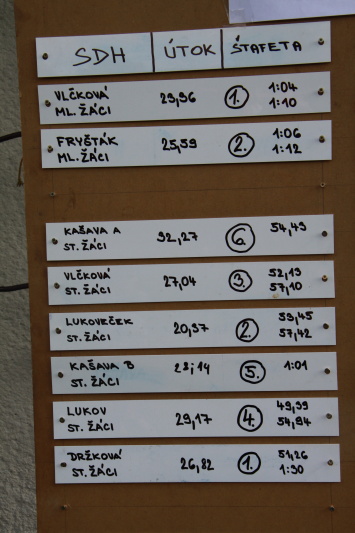 SDH ÚTOK ŠTAFETA
VLČKOVÁ 29,96 1. 1:04
ML. ŽÁCI 1:10
FRYŠTÁK 25,59 2. 1:06
ML. ŽÁCI 1:12
KAŠAVA A 32,27 6. 54,49
ST. ŽÁCI
VLČKOVÁ 27,04 3. 52,19
ST. ŽÁCI 57,10
LUKOVEČEK 20,97 2. 59,45
ST. ŽÁCI 57,42
KAŠAVA B 28,14 5. 1:01
ST. ŽÁCI
LUKOV 29,17 4. 49,99
ST. ŽÁCI 54,94
DRŽKOVÁ 26,82 1. 51,26
ST. ŽÁCI 1:30